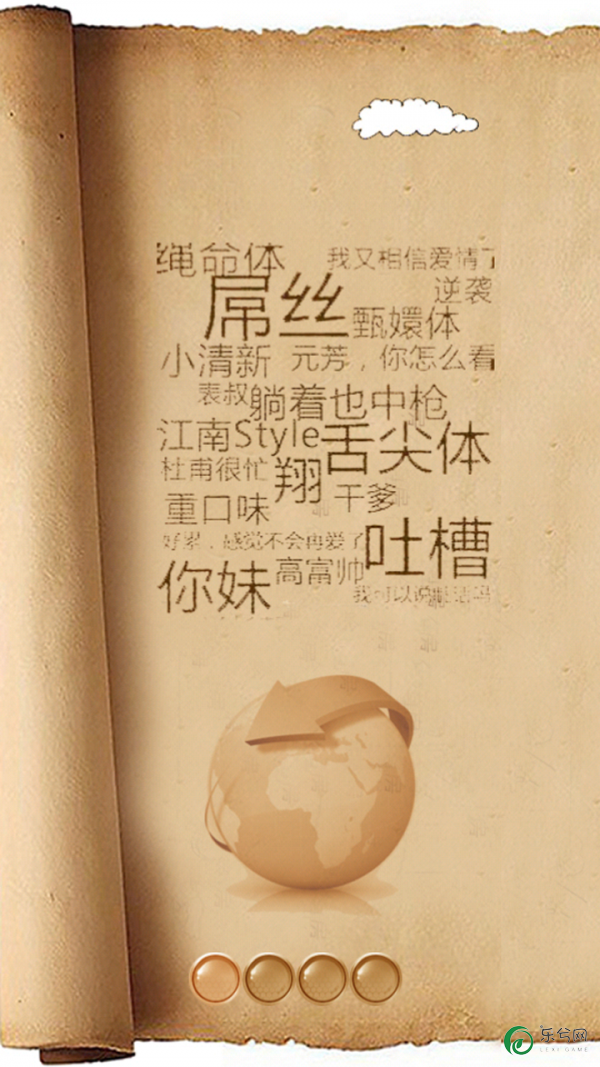 绳命体
我又相信爱情了
屌丝
逆袭
甄嬛体
小清新
元芳，你怎么看
表叔
躺着也中枪
江南Style
舌尖体
杜甫很忙
翔
干爹
重口味
好累，感觉不会再爱了
吐槽
你妹
高富帅
我可以说脏话吗
乐兮网